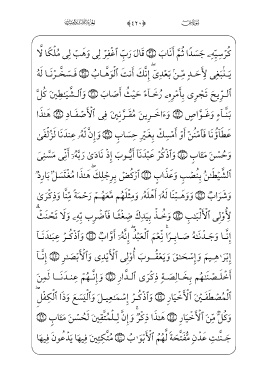 كُرْسِيِّهِۦ جَسَدًا ثُمَّ أَنَابَ ۝ قَالَ رَبِّ ٱغْفِرْ لِى وَهَبْ لِى مُلْكًا لَّا
يَنۢبَغِى لِأَحَدٍ مِّنۢ بَعْدِىٓ ۖ إِنَّكَ أَنتَ ٱلْوَهَّابُ ۝ فَسَخَّرْنَا لَهُ
ٱلرِّيحَ تَجْرِى بِأَمْرِهِۦ رُخَآءً حَيْثُ أَصَابَ ۝ وَٱلشَّيَٰطِينَ كُلَّ
بَنَّآءٍ وَغَوَّاصٍ ۝ وَءَاخَرِينَ مُقَرَّنِينَ فِى ٱلْأَصْفَادِ ۝ هَٰذَا
عَطَآؤُنَا فَٱمْنُنْ أَوْ أَمْسِكْ بِغَيْرِ حِسَابٍ ۝ وَإِنَّ لَهُۥ عِندَنَا لَزُلْفَىٰ
وَحُسْنَ مَـَٔابٍ ۝ وَٱذْكُرْ عَبْدَنَآ أَيُّوبَ إِذْ نَادَىٰ رَبَّهُۥٓ أَنِّى مَسَّنِىَ
ٱلشَّيْطَٰنُ بِنُصْبٍ وَعَذَابٍ ۝ ٱرْكُضْ بِرِجْلِكَ ۖ هَٰذَا مُغْتَسَلٌۢ بَارِدٌ
وَشَرَابٌ ۝ وَوَهَبْنَا لَهُۥٓ أَهْلَهُۥ وَمِثْلَهُم مَّعَهُمْ رَحْمَةً مِّنَّا وَذِكْرَىٰ
لِأُو۟لِى ٱلْأَلْبَٰبِ ۝ وَخُذْ بِيَدِكَ ضِغْثًا فَٱضْرِب بِّهِۦ وَلَا تَحْنَثْ ۗ
إِنَّا وَجَدْنَٰهُ صَابِرًا ۚ نِّعْمَ ٱلْعَبْدُ ۖ إِنَّهُۥٓ أَوَّابٌ ۝ وَٱذْكُرْ عِبَٰدَنَآ
إِبْرَٰهِيمَ وَإِسْحَٰقَ وَيَعْقُوبَ أُو۟لِى ٱلْأَيْدِى وَٱلْأَبْصَٰرِ ۝ إِنَّآ
أَخْلَصْنَٰهُم بِخَالِصَةٍ ذِكْرَى ٱلدَّارِ ۝ وَإِنَّهُمْ عِندَنَا لَمِنَ
ٱلْمُصْطَفَيْنَ ٱلْأَخْيَارِ ۝ وَٱذْكُرْ إِسْمَٰعِيلَ وَٱلْيَسَعَ وَذَا ٱلْكِفْلِ ۖ
وَكُلٌّ مِّنَ ٱلْأَخْيَارِ ۝ هَٰذَا ذِكْرٌ ۚ وَإِنَّ لِلْمُتَّقِينَ لَحُسْنَ مَـَٔابٍ ۝
جَنَّٰتِ عَدْنٍ مُّفَتَّحَةً لَّهُمُ ٱلْأَبْوَٰبُ ۝ مُتَّكِـِٔينَ فِيهَا يَدْعُونَ فِيهَا